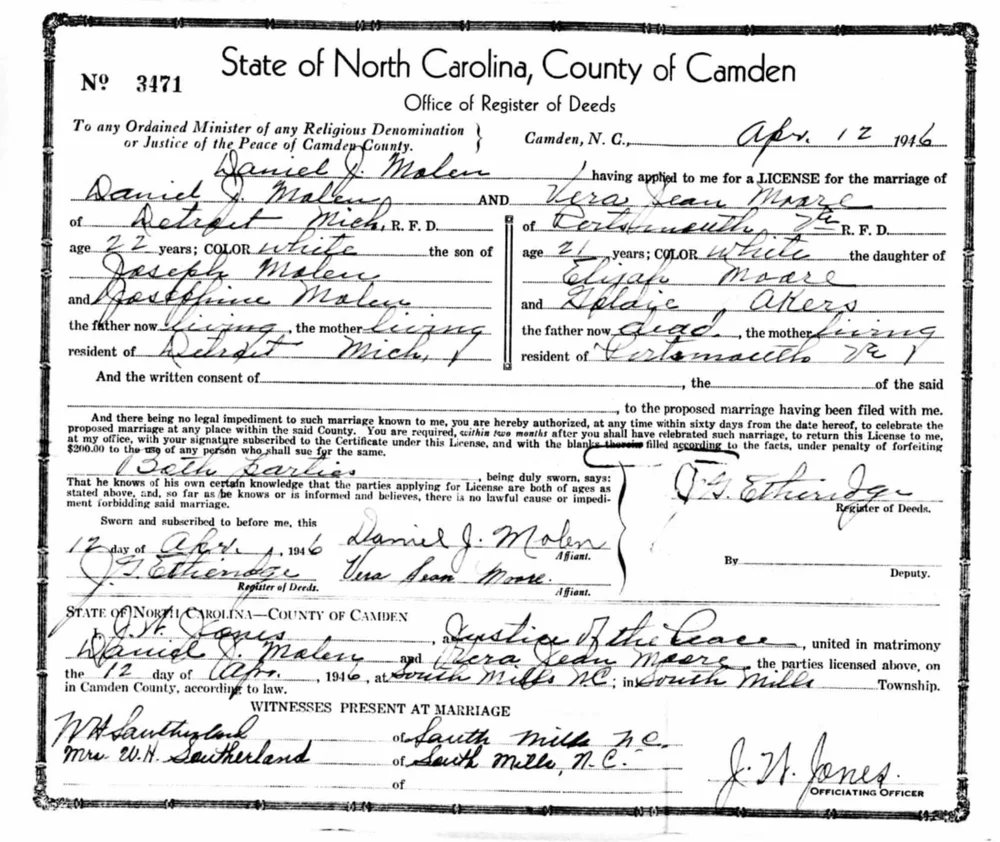 State of North Carolina, County of Camden
Nº 3471
Office of Register of Deeds
To any Ordained Minister of any Religious Denomination
or Justice of the Peace of Camden County.
Camden, N. C., Apr. 12 1946
Daniel J. Molen having applied to me for a LICENSE for the marriage of
Daniel J. Molen AND Vera Jean Moore
of Detroit Mich, R. F. D. of Portsmouth Va R. F. D.
age 22 years; COLOR white the son of age 21 years; COLOR white the daughter of
Joseph Molen Elijah Moore
and Josephine Molen and Goldie Akers
the father now living, the mother living the father now dead, the mother living
resident of Detroit Mich, resident of Portsmouth Va
And the written consent of , the of the said
, to the proposed marriage having been filed with me.
And there being no legal impediment to such marriage known to me, you are hereby authorized, at any time within sixty days from the date hereof, to celebrate the
proposed marriage at any place within the said County. You are required, within two months after you shall have celebrated such marriage, to return this License to me,
at my office, with your signature subscribed to the Certificate under this License, and with the blanks therein filled according to the facts, under penalty of forfeiting
$200.00 to the use of any person who shall sue for the same.
Both parties, being duly sworn, says:
That he knows of his own certain knowledge that the parties applying for License are both of ages as
stated above, and, so far as he knows or is informed and believes, there is no lawful cause or impedi-
ment forbidding said marriage.
J. G. Etheridge
Register of Deeds.
Sworn and subscribed to before me, this
12 day of Apr., 1946 Daniel J. Molen
Affiant.
By
Deputy.
J. G. Etheridge Vera Jean Moore.
Register of Deeds. Affiant.
STATE OF NORTH CAROLINA—COUNTY OF CAMDEN
I, J. W. Jones, a Justice of the Peace, united in matrimony
Daniel J. Molen and Vera Jean Moore, the parties licensed above, on
the 12 day of Apr., 1946, at South Mills N.C.; in South Mills Township.
in Camden County, according to law.
WITNESSES PRESENT AT MARRIAGE
W H Southerland of South Mills N.C.
Mrs. W. H. Southerland of South Mills, N. C.
of
J. W. Jones.
OFFICIATING OFFICER